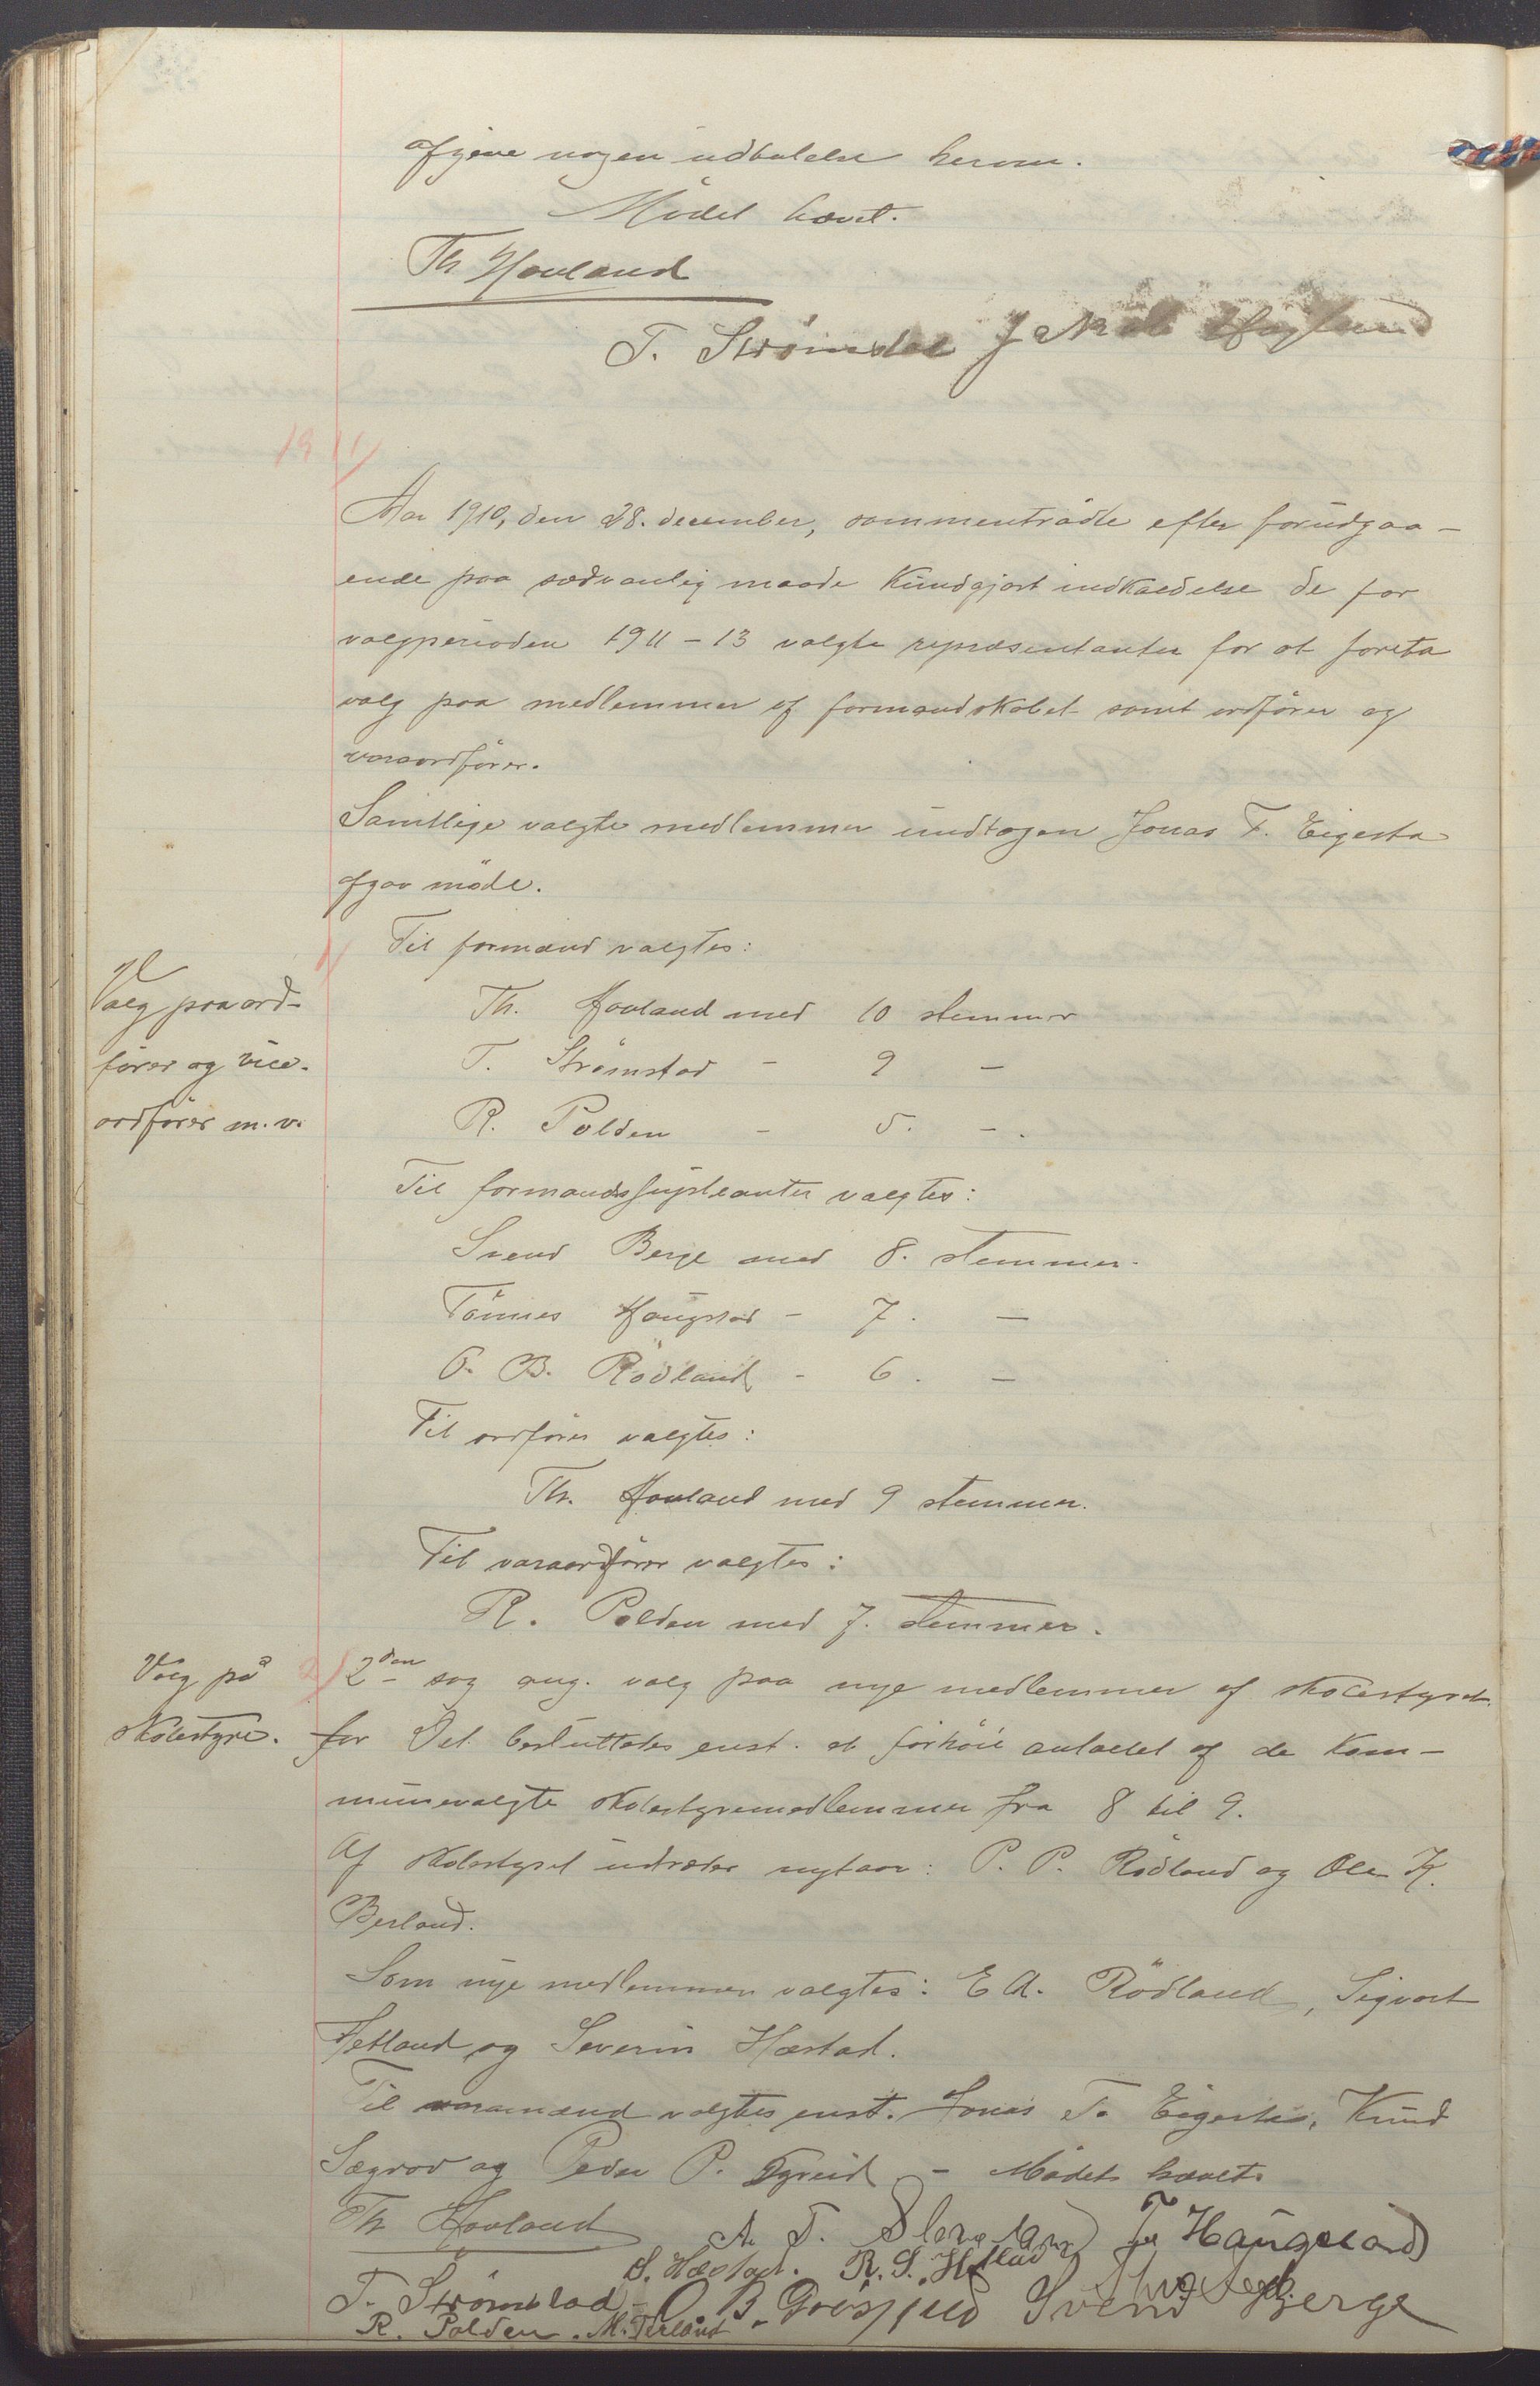 afgive nogen udtalelse herom.
Mödet hævet.
Th Hovland
T. Strömstad
1911
Aar 1910, den 28. december, sammentraadte efter forudgaa-
ende paa sædvanlig maade kundgjort indkaldelse de for
valgperioden 1911 - 13 valgte repræsentanter for at foreta
valg paa medlemmer af formandskabet samt ordförer og
varaordförer.
Samtlige valgte medlemmer undtagen Jonas T. Eigesta
afgav möde.
1/ Til formænd valgtes:
Valg paa ord-
förer og vice-
ordförer m. v.
Th. Hovland med 10 stemmer
T. Strömstad - 9 -
R. Polden - 5. -.
Til formandssupleanter valgtes:
Svend Berge med 8. stemmer.
Tönnes Haugstad - 7. -
O. B. Rödland - 6. -
Til ordförer valgtes:
Th. Hovland med 9 stemmer.
Til varaordförer valgtes:
R. Polden med 7. stemmer.
Valg på
skolestyre.
2/ 2den sag ang. valg paa nye medlemmer af skolestyret.
for Det besluttedes enst. at forhöie antallet af de kom-
munevalgte skolestyremedlemmer fra 8 til 9.
Af skolestyret udtræder nytaar: P. P. Rödland og Ole K.
Berland.
Som nye medlemmer valgtes: E A. Rödland, Sigvart
Hetland og Severin Hæstad.
Til varamænd valgtes enst. Jonas T. Eigesta, Knud
Sægrov og Peder P. - Mödet hævet.
Th Hovland
A. T. T Haugstad
S. Hæstad. R. S. Hetland
T. Strömstad - O B. Svend Berge
R. Polden. M.